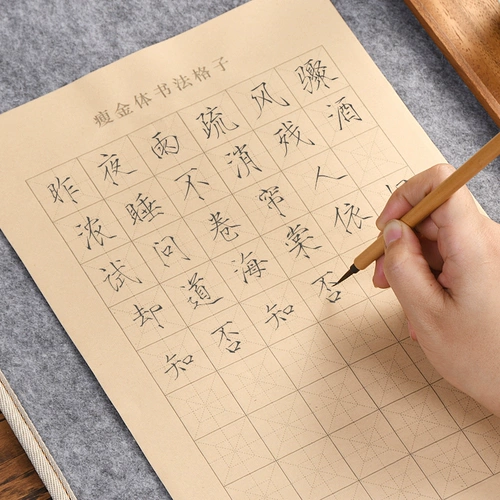 瘦金体书法格子
昨夜雨疏风骤
浓睡不消残酒
试问卷帘人
却道海棠依
知否知否